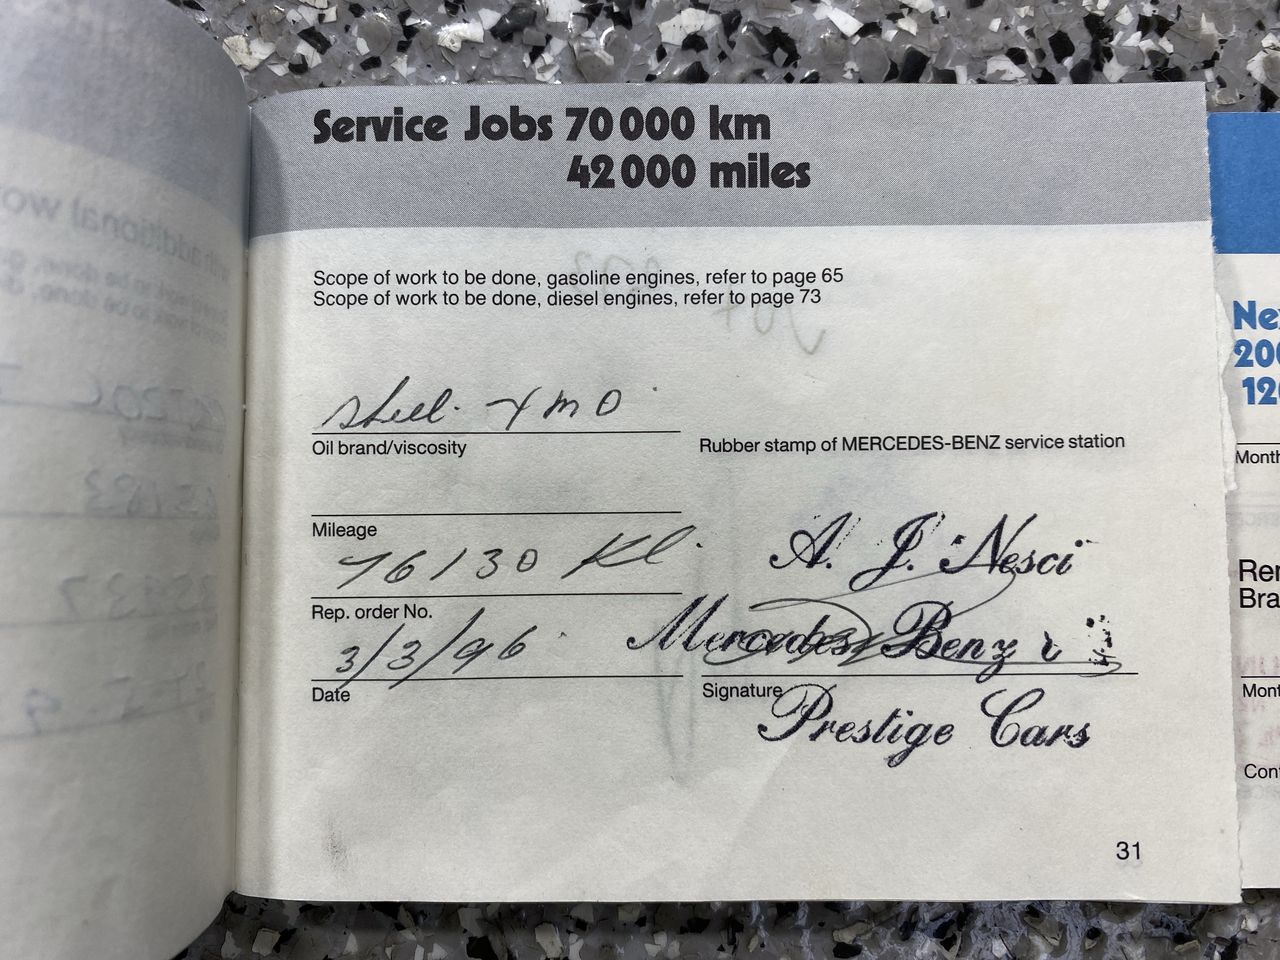 Service Jobs 70 000 km
42 000 miles
Scope of work to be done, gasoline engines, refer to page 65
Scope of work to be done, diesel engines, refer to page 73
Shell. XMO
Oil brand/viscosity
Rubber stamp of MERCEDES-BENZ service station
Mileage
76130 Kl.
Rep. order No.
3/3/96
Date
A. J. Nesci
Mercedes Benz
Signature
Prestige Cars
31
Nex
200
120
Month
Bra
Mont